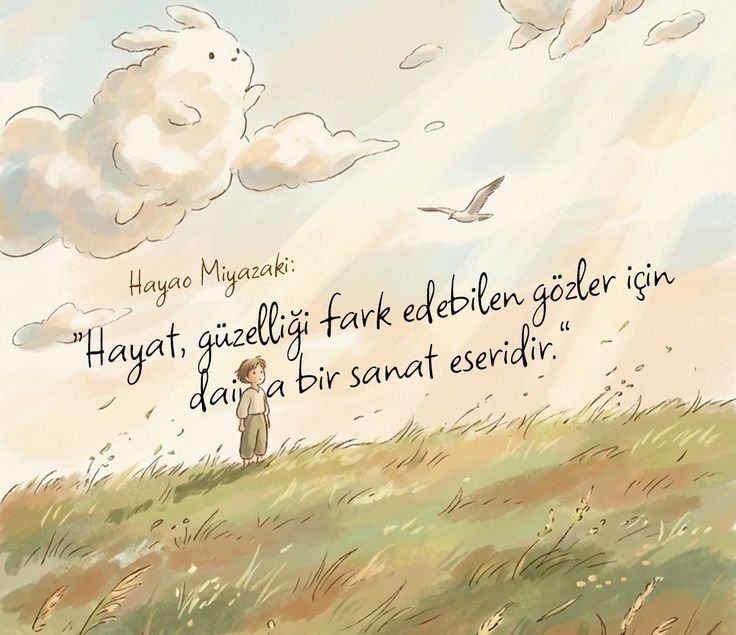 Hayao Miyazaki:
"Hayat, güzelliği fark edebilen gözler için
daima bir sanat eseridir."